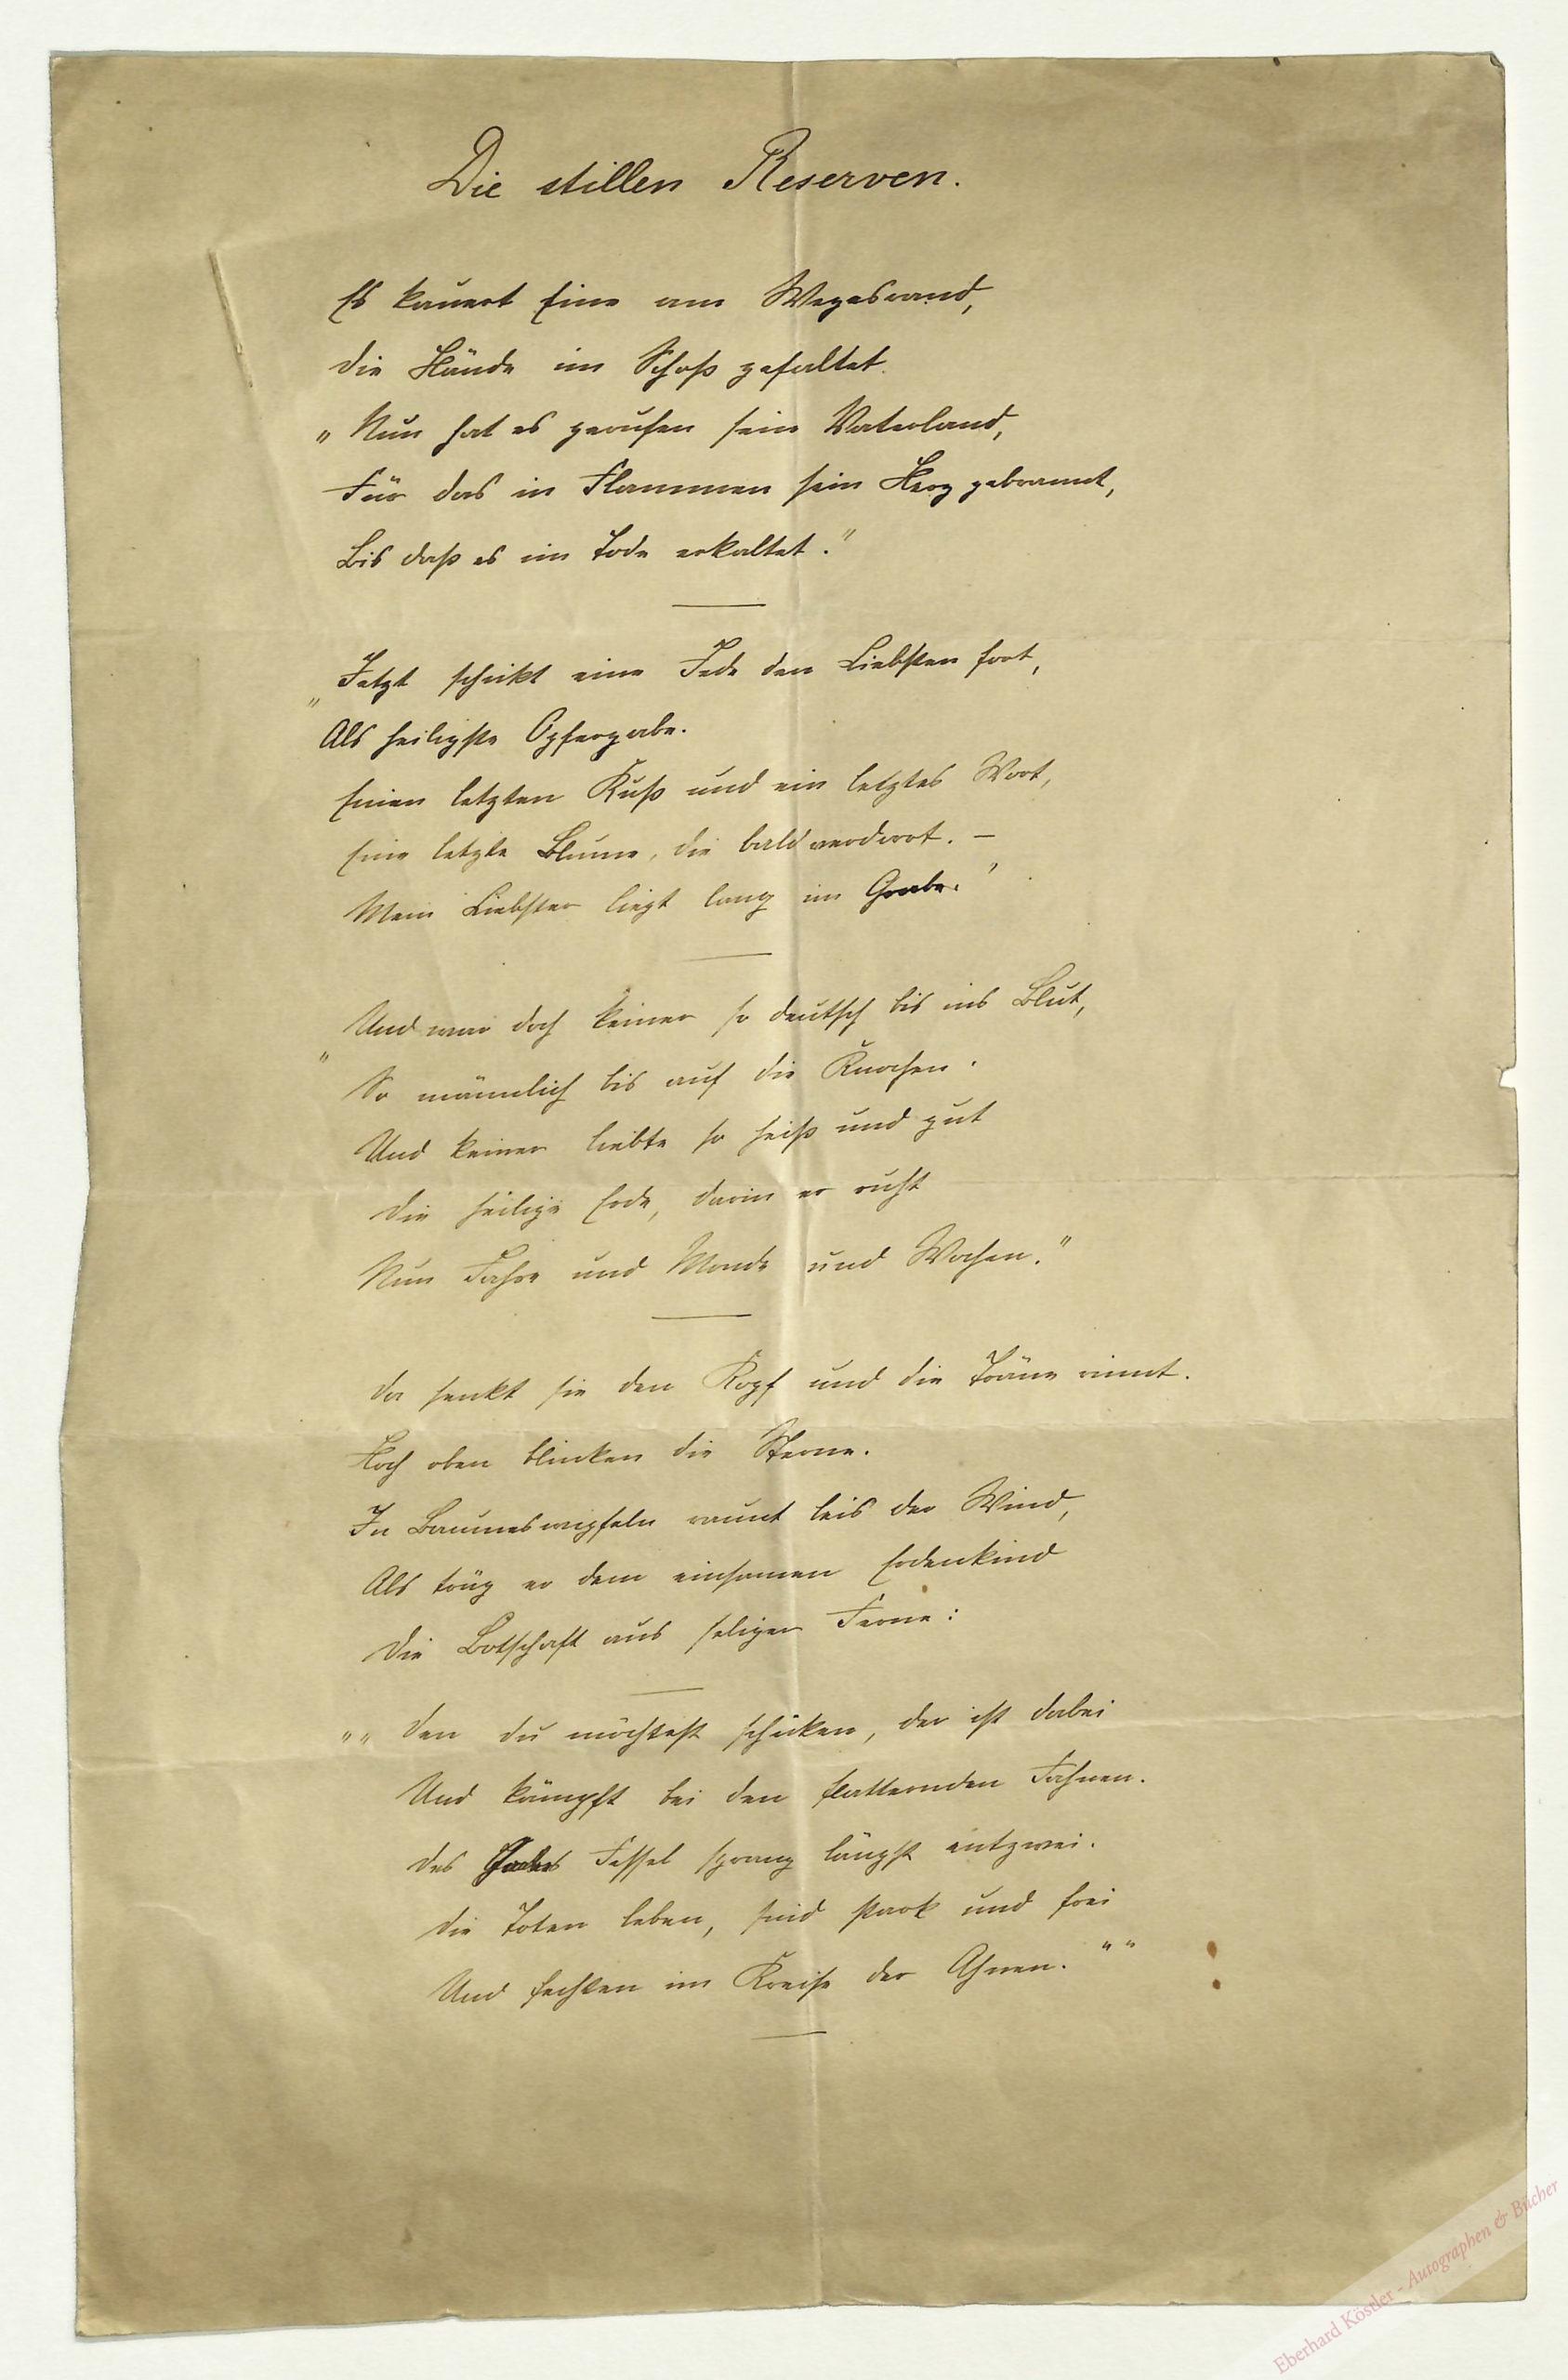 Die stillen Reserven.
Es kauert Eine am Wegesrand,
Die Hände im Schoß gefaltet.
„Nun hat es gerufen sein Vaterland,
Für das in Flammen sein Herz gebrannt,
Bis daß es im Tode erkaltet."
„Jetzt schickt eine Jede den Liebsten fort,
Als heiligste Opfergabe.
Einen letzten Kuß und ein letztes Wort,
Eine letzte Blume, die bald verdorrt. –
Mein Liebster liegt lang im Grabe."
„Und war doch keiner so deutsch bis ins Blut,
So männlich bis auf die Knochen.
Und keiner liebte so heiß und gut
Die heilige Erde, darin er ruht
Nun Jahre und Monde und Wochen."
Da senkt sie den Kopf und die Träne rinnt.
Hoch oben blinken die Sterne.
In Baumeswipfeln raunt leis der Wind,
Als trüg er dem einsamen Erdenkind
Die Botschaft aus seliger Ferne:
„„Den du möchtest schicken, der ist dabei
Und kämpft bei den flatternden Fahnen.
Des Fessel sprang längst entzwei.
Die Toten leben, sind stark und frei
Und fechten im Kreise der Ahnen.""
Eberhard Köstler - Autographen & Bücher